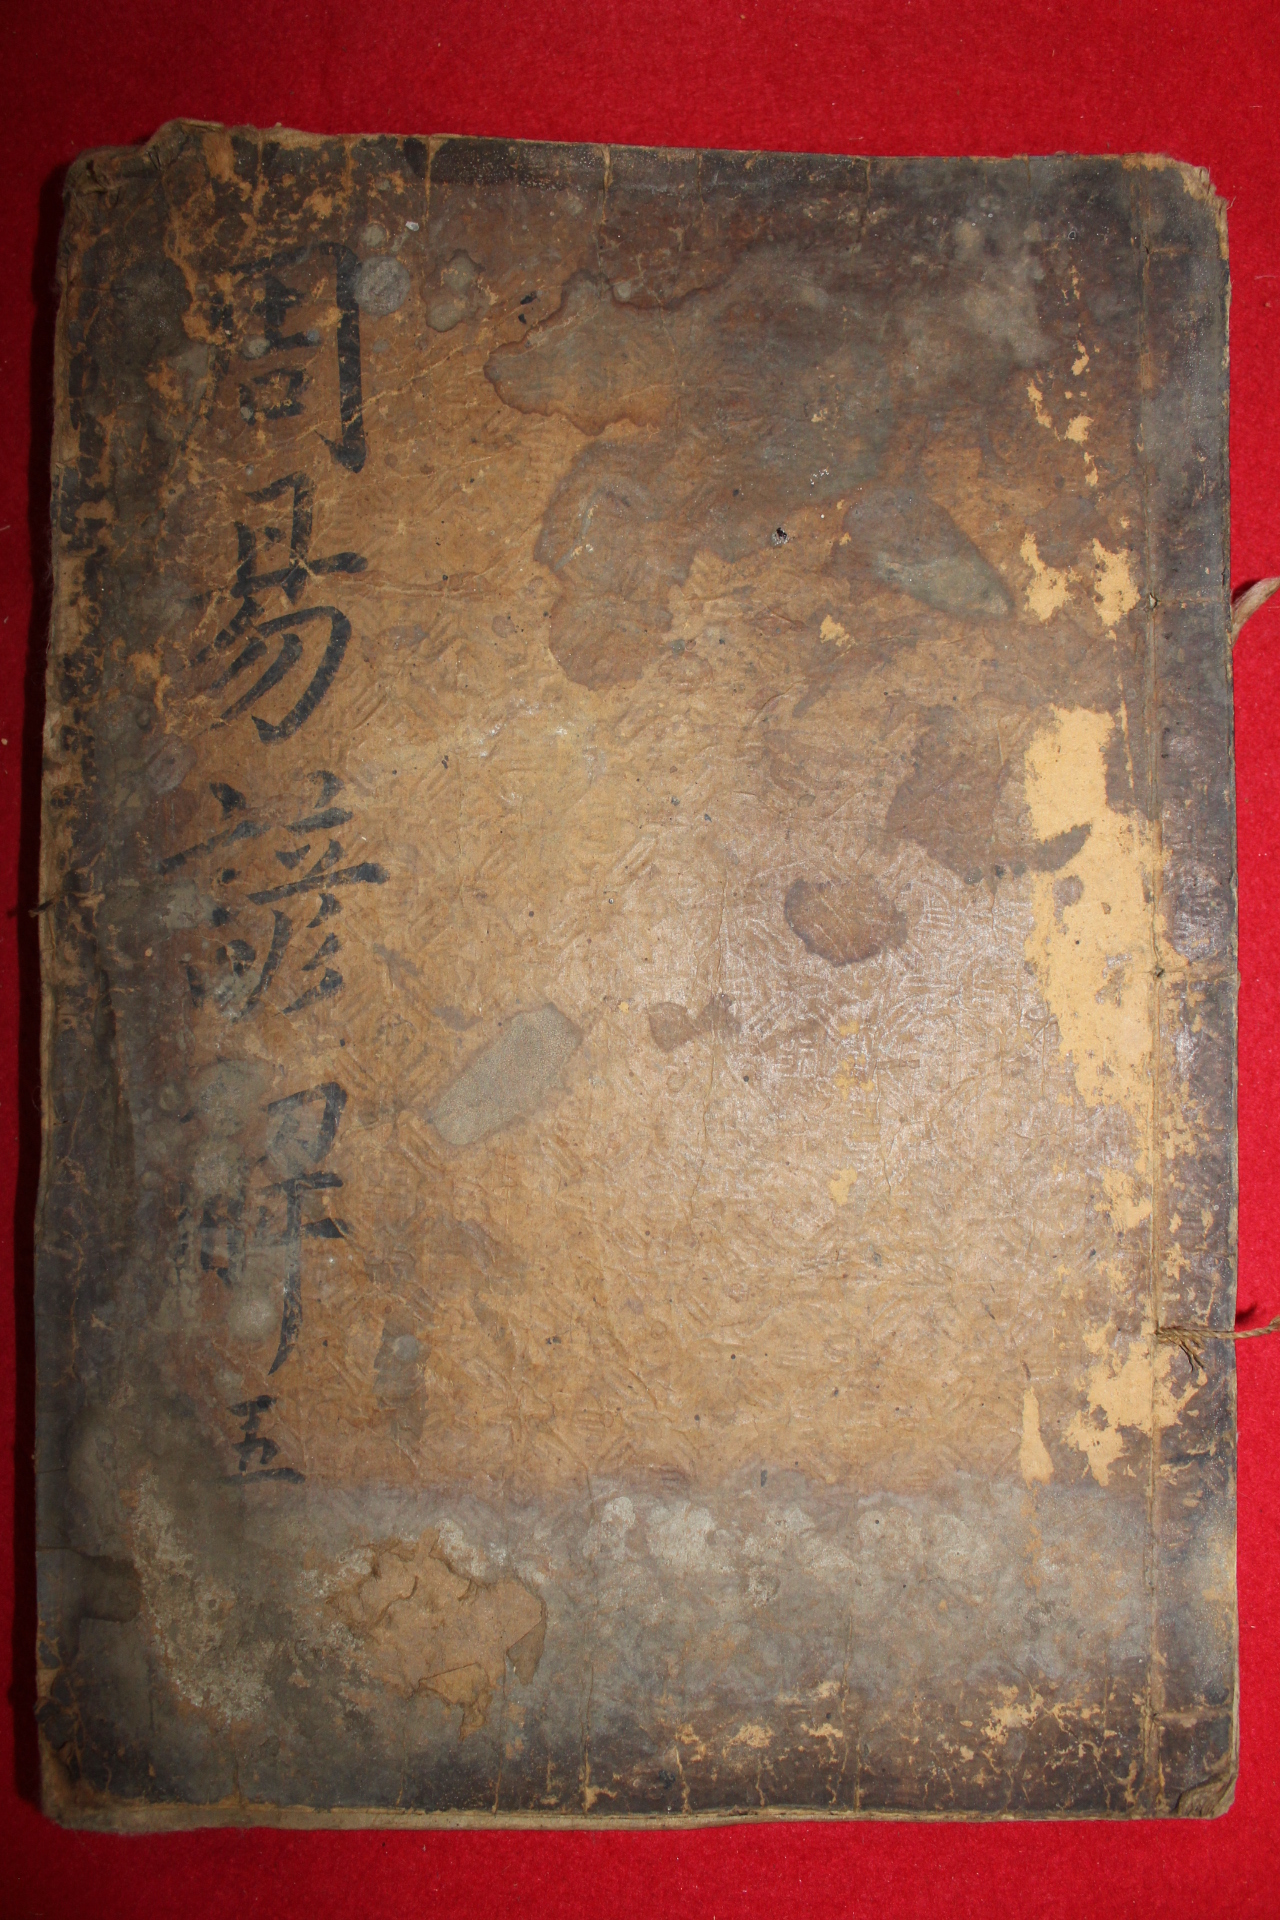 周易諺解 五